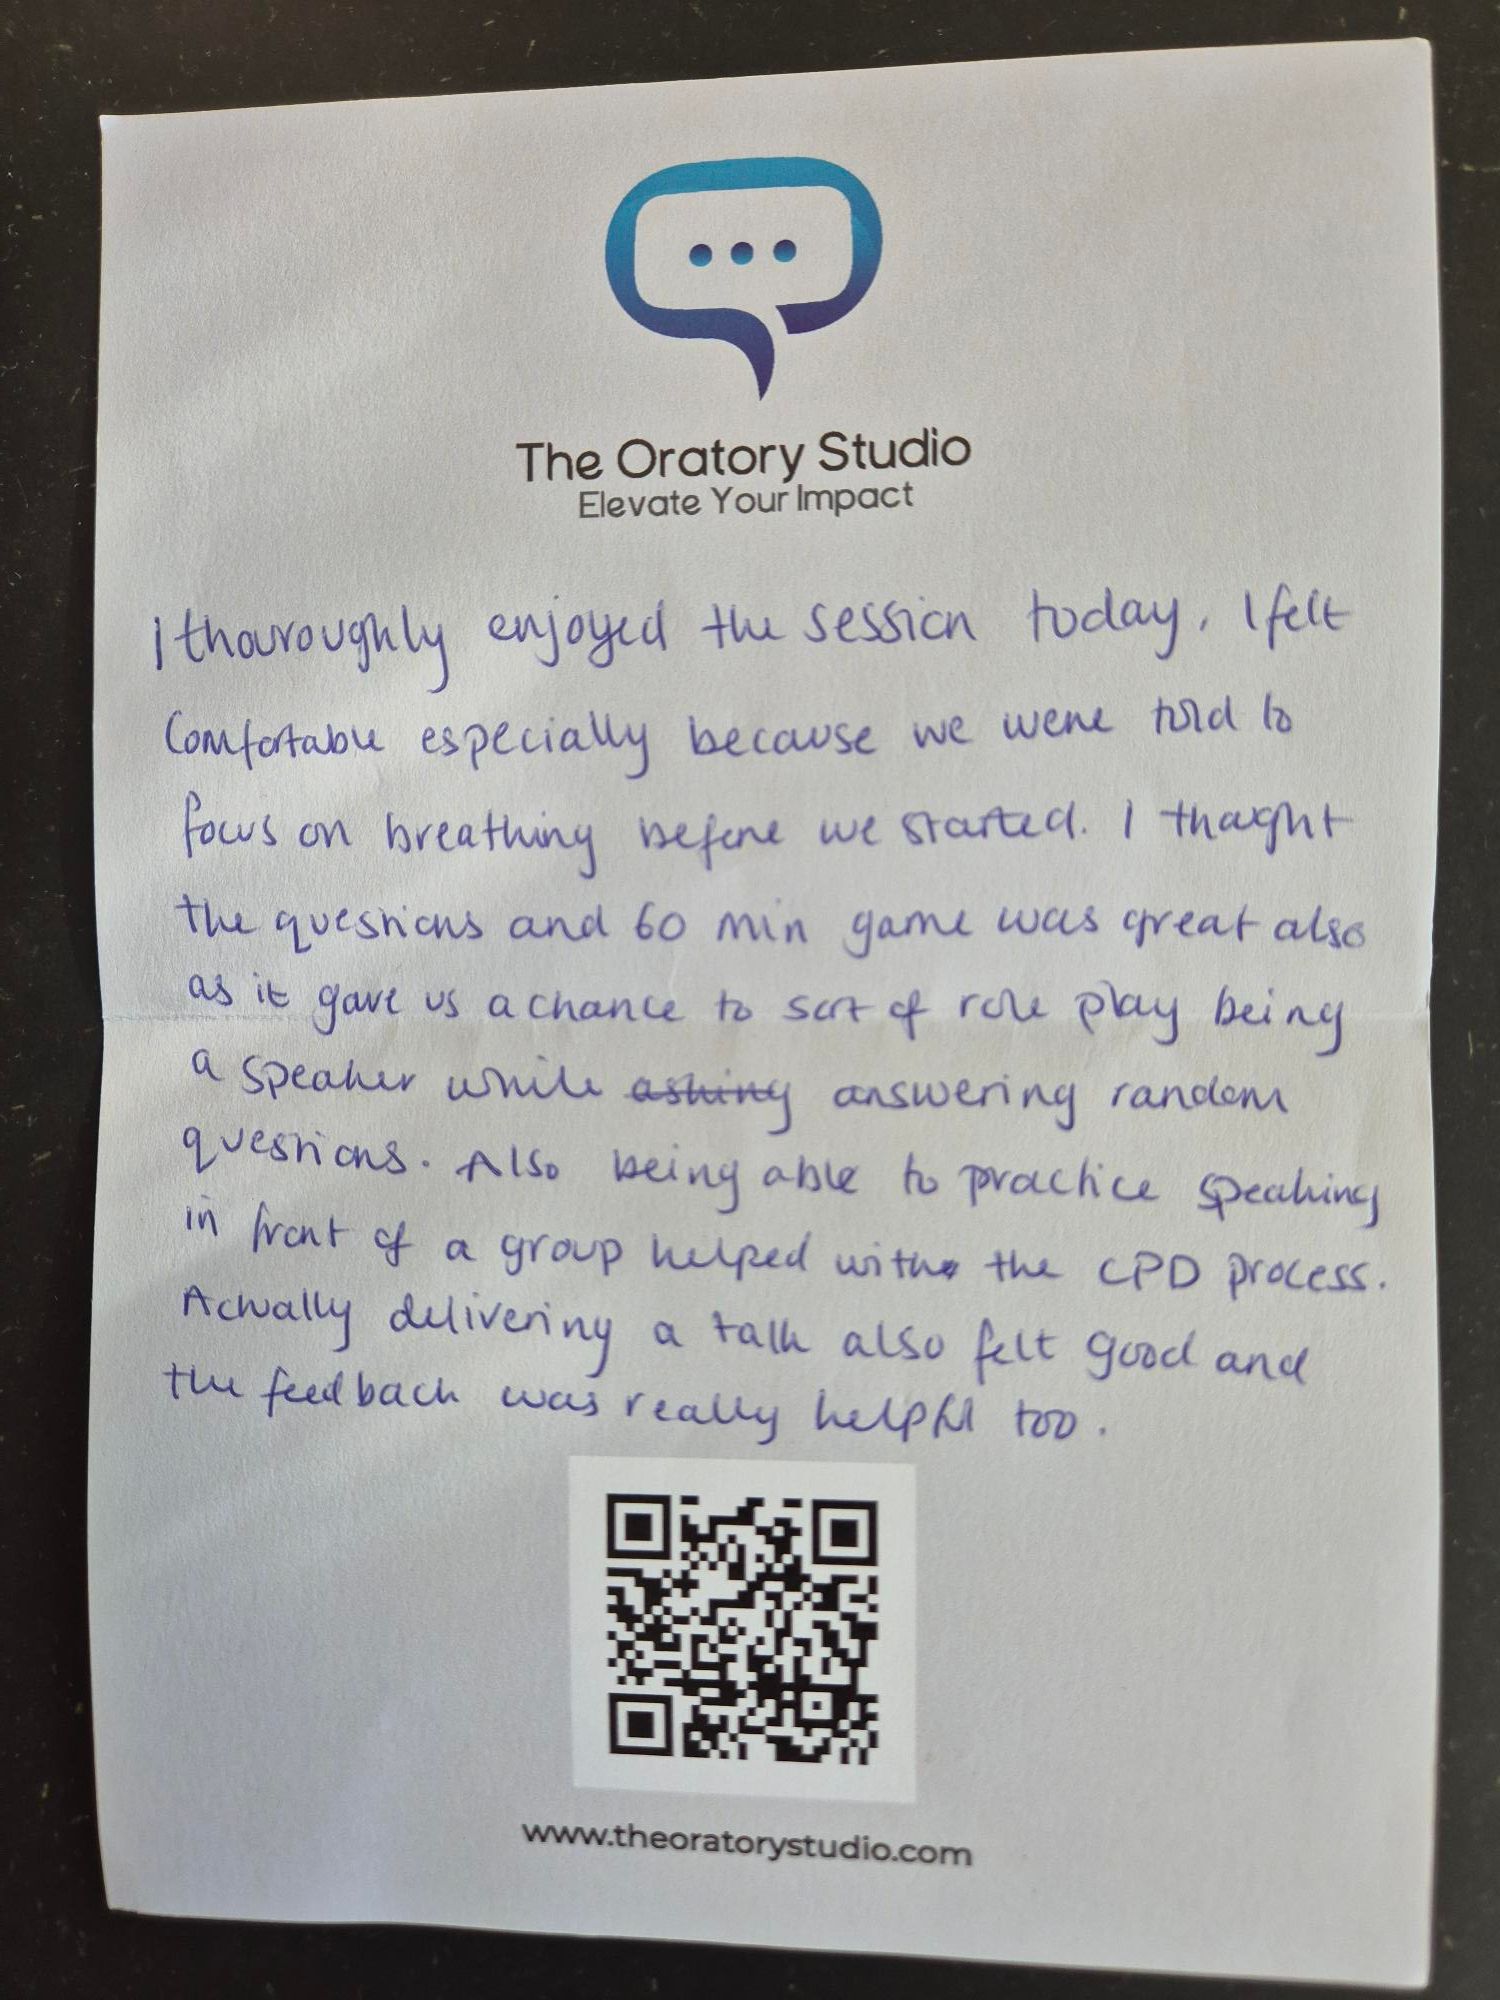 The Oratory Studio
Elevate Your Impact
I thouroughly enjoyed the session today. I felt
Comfortable especially because we were told to
focus on breathing before we started. I thought
the questions and 60 min game was great also
as it gave us a chance to sort of role play being
a speaker while asking answering random
questions. Also being able to practice speaking
in front of a group helped with the CPD process.
Actually delivering a talk also felt good and
the feedback was really helpful too.
www.theoratorystudio.com